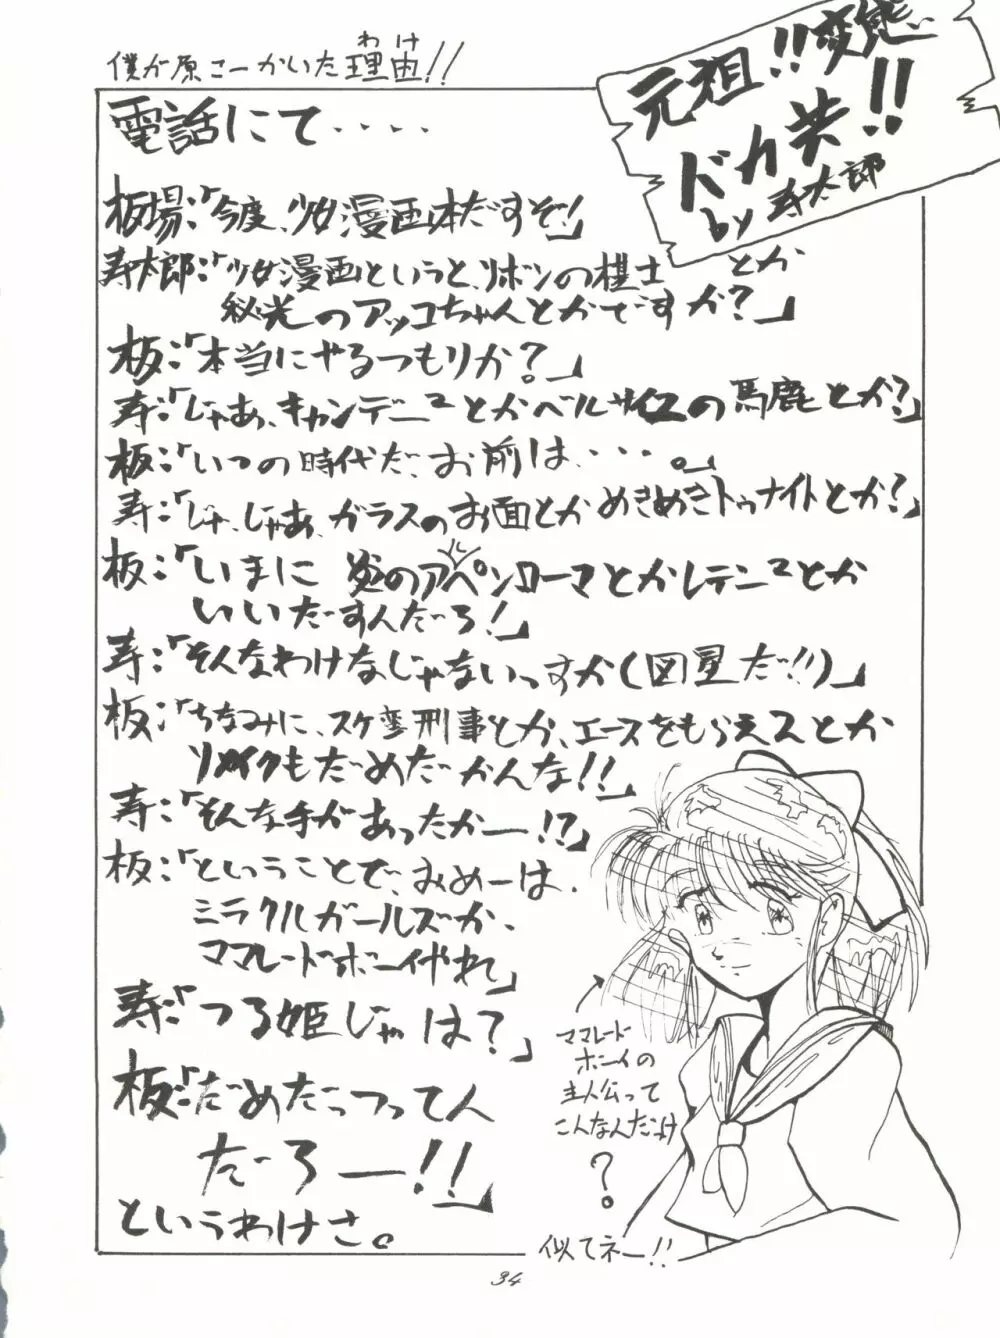 僕が原こーかいた理由!!
わけ
元祖!!変態
ドカ
by 寿太郎
電話にて・・・・
板場:「今度、少女漫画本だすぞ!」
寿太郎:「少女漫画というと、リボンの棋士とか
秘光のアッコちゃんとかですか?」
板:「本当にやるつもりか?」
寿:「じゃあ、キャンデニ〜とかベルサイユの馬鹿とか?」
板:「いつの時代だ、お前は・・・。」
寿:「じゃ、じゃあ、ガラスのお面とかめきめきトゥナイトとか?」
板:「いまに 炎のアルペンローマとかレテニ〜とか
いいだすんだろ!」
寿:「そんなわけなじゃないっすか(図星だ!!)」
板:「ちなみに、スケ変刑事とか、エースをもらえ2とか
リメイクもだめだかんな!!」
寿:「そんな手があったかー!?」
板:「ということで、おめーは、
ミラクルガールズか、
ママレードボーイやれ」
寿:「つる姫じゃは?」
板:「だめだっつってん
だろー!!」
というわけさ。
ママレード
ボーイの
主人公って
こんなんだっけ
?
似てネー!!
34